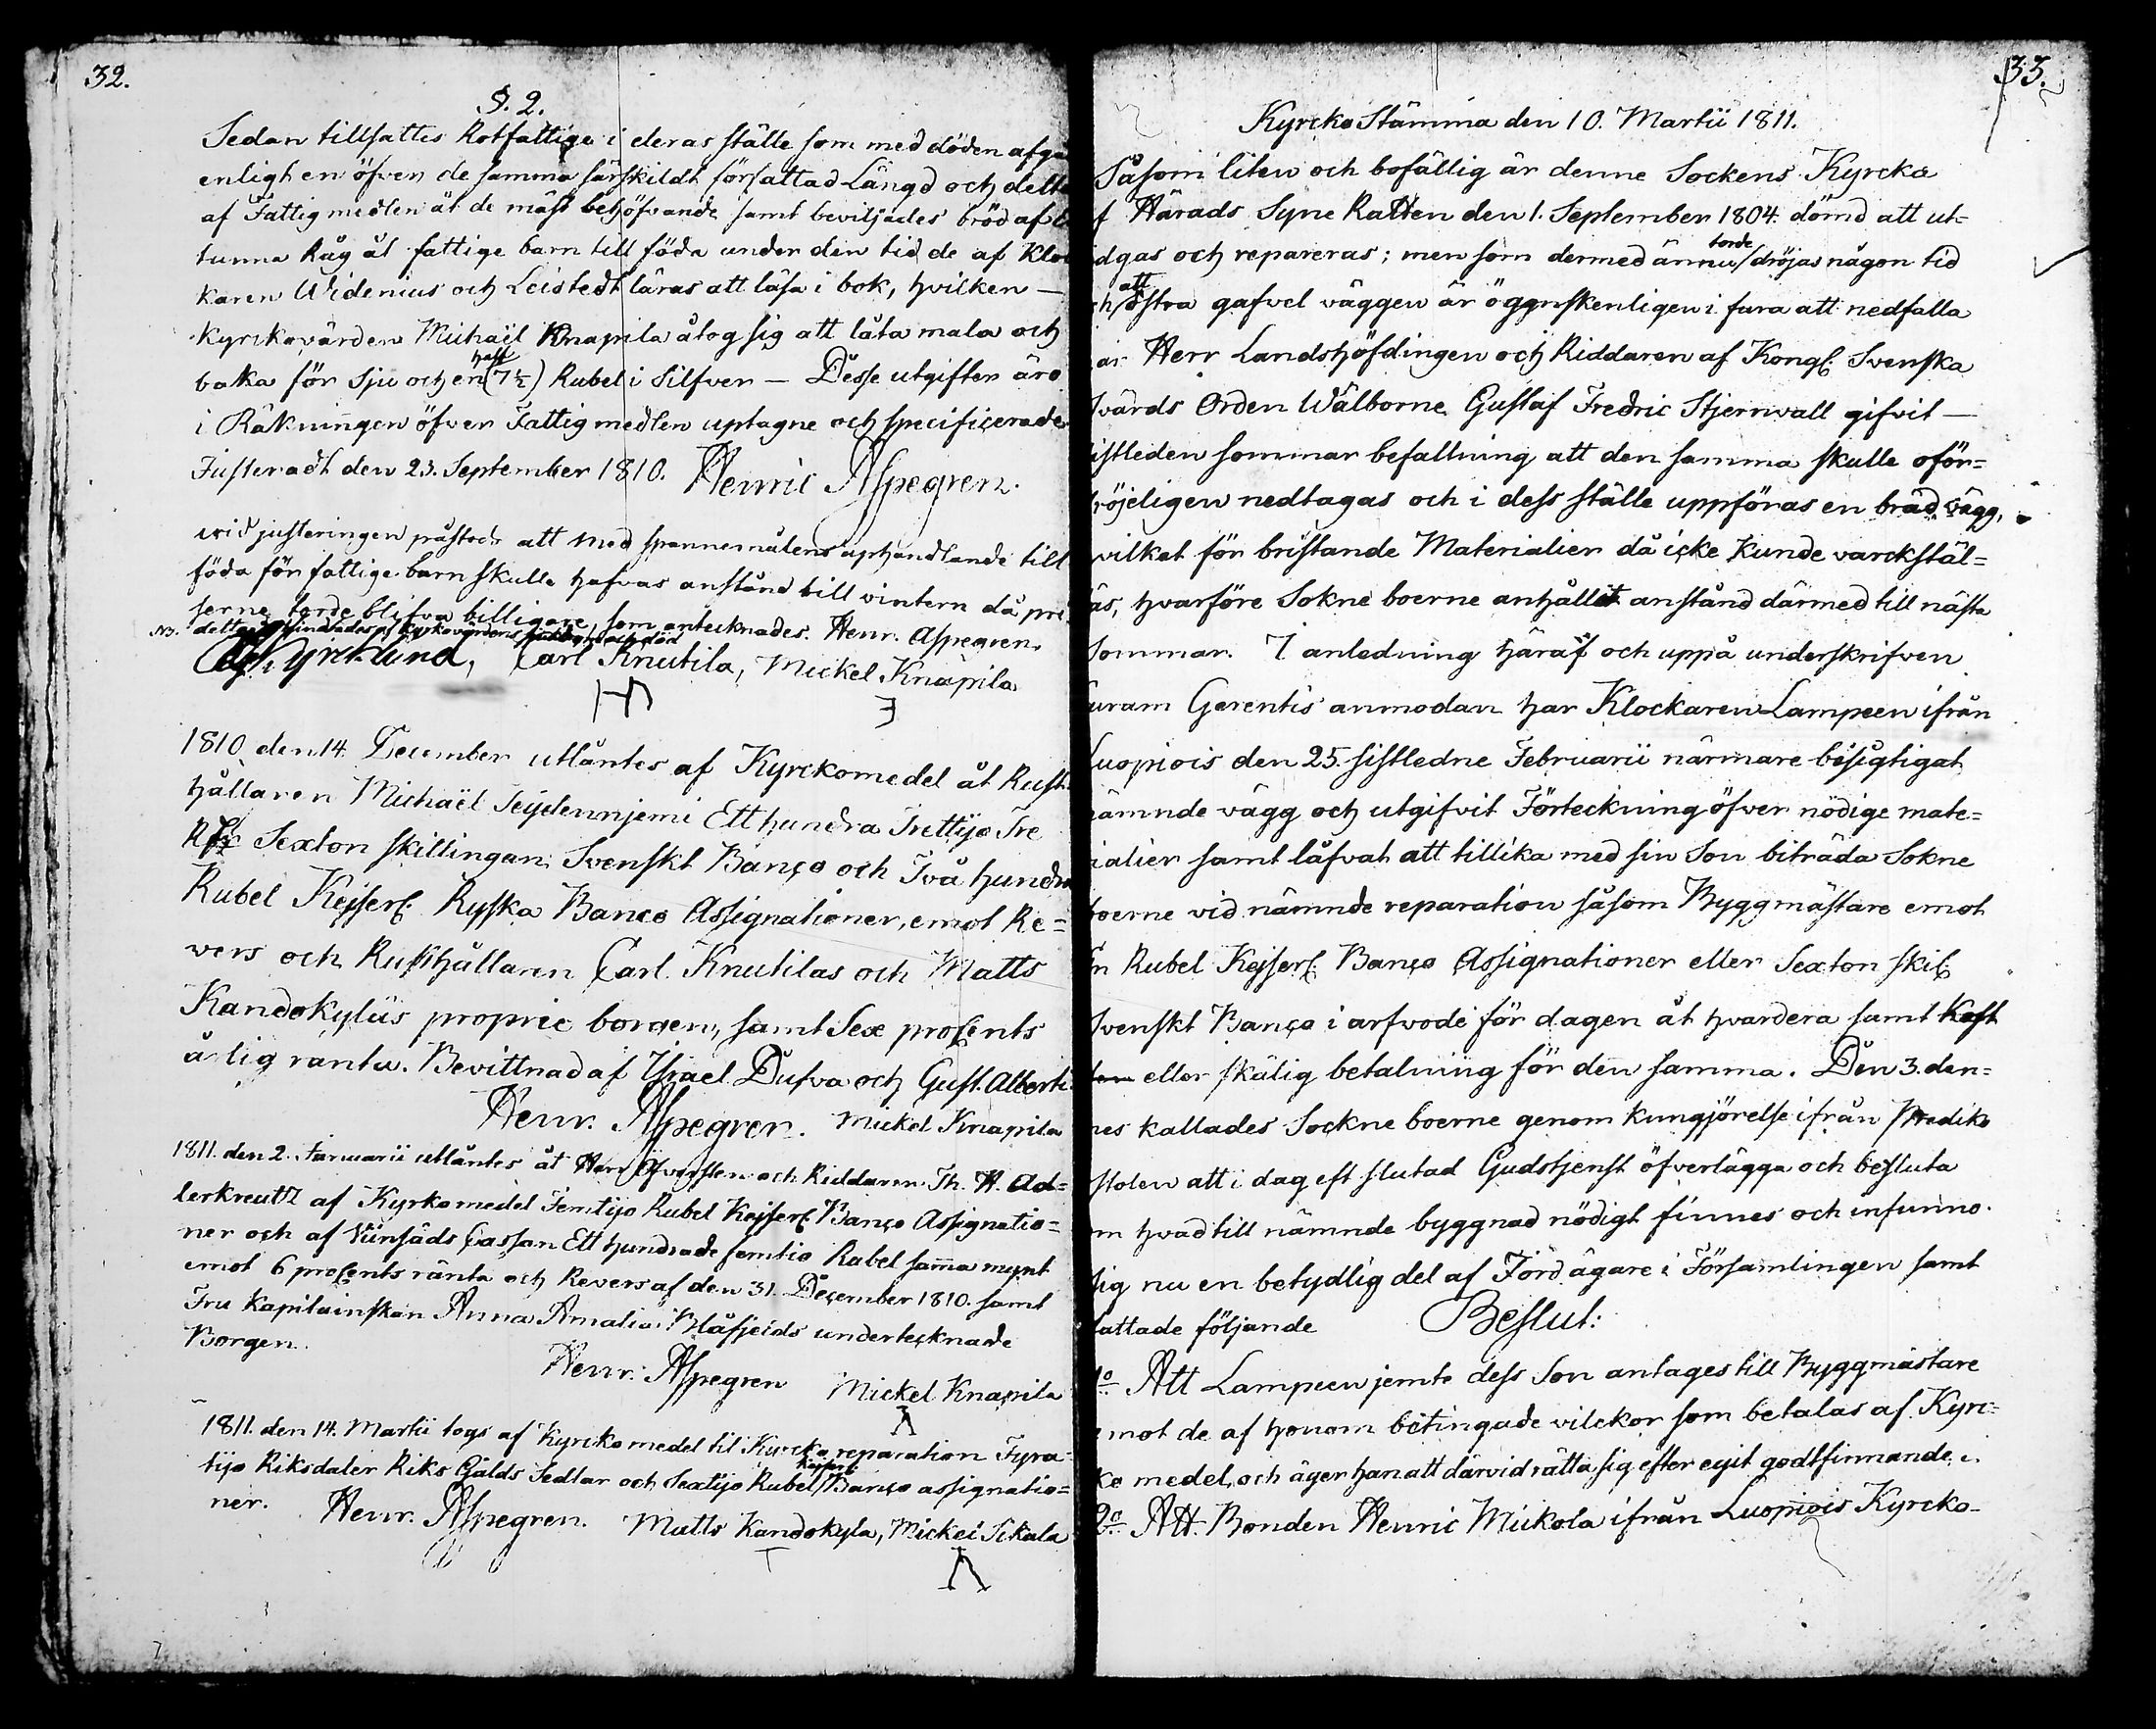 32.
S. 2.
Sedan tillsattes Rotfattige i deras ställe som med döden afgå
enligt en öfver de samma särskildt författad Längd och delte
af Fattig medlen åt de mäst behöfvande samt beviljades bröd af
tunna Råg åt fattige barn till föda under den tid de af Kloc
karen Widenius och Leistedt läras att läsa i bok, hvilken —
Kyrckovärden Michaël Knapila åtog sig att låta mala och
half
baka för sju och en (7½) Rubel i Silfver — Desse utgifter äro
i Räkningen öfver Fattig medlen uptagne och specificerade
Justeradt den 23. September 1810. Henric Aspegren.
vid justeringen påstods att med spannemålens uphandlande till
föda för fattige barn skulle hafvas anstånd till vintern då pri
serne torde blifva billigare, som antecknades. Henr. Aspegren.
NB. detta Kyrkovärdens
Kyrcklund, Carl Knutila, Mickel Knapila
1810 den 14. December utlåntes af Kyrckomedel åt Rust
hållaren Michaël Seydennjemi Ett hundra Trettijo Tre
Rdr Sexton skillingar Svenskt Banco och Två hundra
Rubel Kejserl. Ryska Banco Assignationer, emot Re=
vers och Rusthållaren Carl Knutilas och Matts
Kandokyläs proprie borgen, samt Sex procents
årlig ränta. Bevittnad af Israel Dufva och Gust. Alberti
Henr. Aspegren. Mickel Knapila
1811. den 2. Januarii utlåntes åt Herr Öfversten och Riddaren Th. H. Ad=
lerkreutz af Kyrkomedel Femtijo Rubel Kejserl. Banco Assignatio=
ner och af Viinsäds Cassan Ett hundrade femtio Rubel samma mynt
emot 6 procents ränta och Revers af den 31. December 1810. samt
Fru Kapitainskan Anna Amalia Blåfjelds undertecknade
Borgen.
Henr. Aspegren Mickel Knapila
1811. den 14. Martii togs af Kyrcko medel til Kyrcko reparation Fyra=
Kejserl.
tijo Riksdaler Riks Gälds Sedlar och Sextijo Rubel Banco assignatio=
ner. Henr. Aspegren. Matts Kandokyla, Mickel Sikala
33.
Kyrcko Stämma den 10. Martii 1811.
Såsom liten och bofällig är denne Sockens Kyrcka
f Härads Syne Rätten den 1. September 1804. dömd att ut=
torde
dgas och repareras; men som dermed ännu dröjas någon tid
att
h östra gafvel väggen är ögonskenligen i fara att nedfalla
ar Herr Landshöfdingen och Riddaren af Kongl. Svenska
Svärds Orden Wälborne Gustaf Fredric Stjernvall gifvit —
istleden sommar befallning att den samma skulle oför=
röjeligen nedtagas och i dess ställe uppföras en bräd vägg,
vilket för bristande Materialier då icke kunde verckstäl=
as, hvarföre Sokne boerne anhållit anstånd därmed till nästa
Sommar. I anledning häraf och uppå underskrifven
uram Gerentis anmodan har Klockaren Lampeen ifrån
Luopiois den 25. sistledne Februarii närmare besigtigat
nämnde vägg och utgifvit Förteckning öfver nödige mate=
ialier samt låfvat att tillika med sin Son biträda Sokne
boerne vid nämnde reparation såsom Byggmästare emot
n Rubel Kejserl. Banco Assignationer eller Sexton skil.
Svenskt Banco i arfvode för dagen åt hvardera samt Kost
eller skälig betalning för den samma. Den 3. den=
nes kallades Sockne boerne genom kungjörelse ifrån Predik
stolen att i dag eft slutad Gudstjenst öfverlägga och besluta
m hvad till nämnde byggnad nödigt finnes och infunno
sig nu en betydlig del af Jord ägare i Församlingen samt
fattade följande Beslut:
1o Att Lampeen jemte dess Son antages till Byggmästare
emot de af honom betingade vilckor som betalas af Kyrc=
ko medel, och äger han att därvid rätta sig efter egit godtfinnande.
2o Att Bonden Henric Mickola ifrån Luopiois Kyrcko-